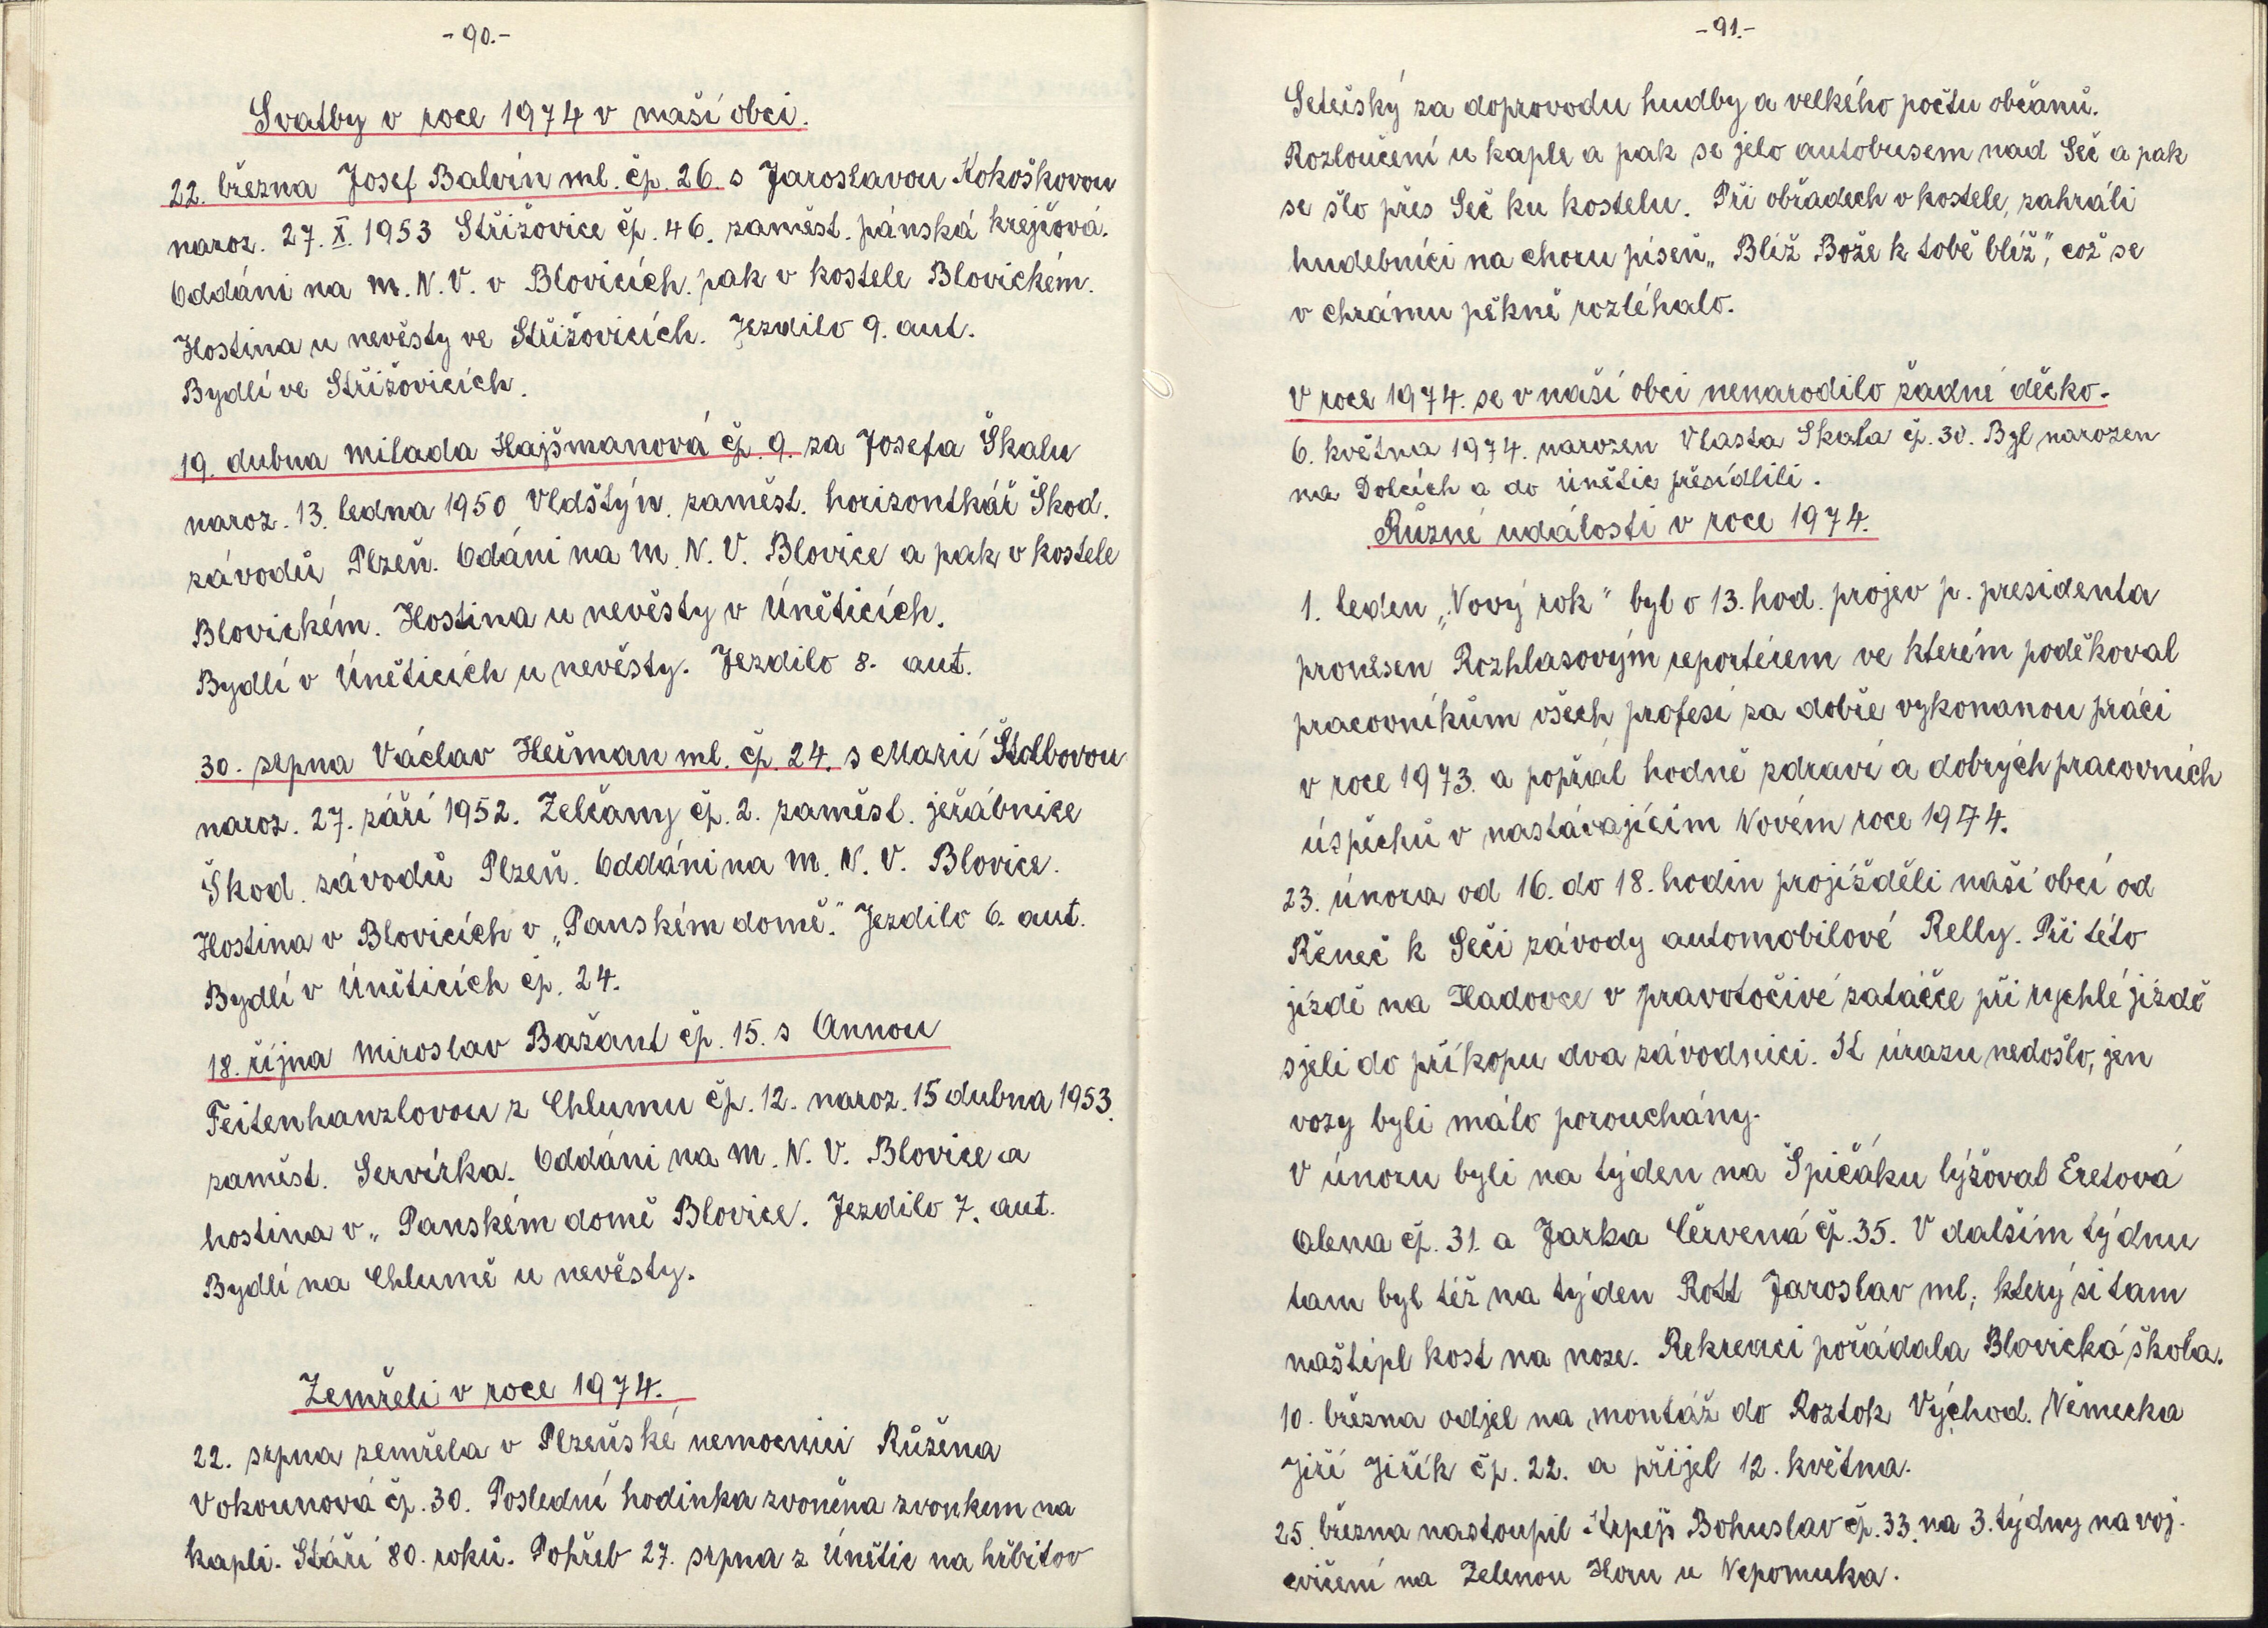 -90.-
Svatby v roce 1974 v naší obci.
22. března Josef Balvín ml. čp. 26. s Jaroslavou Kokoškovou
naroz. 27. X. 1953 Střížovice čp. 46. zaměst. pánská krejčová.
Oddáni na M. N. V. v Blovicích. pak v kostele Blovickém.
Hostina u nevěsty ve Střížovicích. Jezdilo 9. aut.
Bydlí ve Střížovicích.
19. dubna Milada Hajšmanová čp. 9. za Josefa Škalu
naroz. 13. ledna 1950 Vldštýn. zaměst. horizontkář Škod.
závodů Plzeň. Odáni na M. N. V. Blovice a pak v kostele
Blovickém. Hostina u nevěsty v Úněticích.
Bydlí v Úněticích u nevěsty. Jezdilo 8. aut.
30. srpna Václav Heřman ml. čp. 24. s Marií
naroz. 27. září 1952. Želčany čp. 2. zaměst. jeřábnice
Škod. závodů Plzeň. Oddáni na M. N. V. Blovice.
Hostina v Blovicích v „Panském domě." Jezdilo 6. aut.
Bydlí v Úněticích čp. 24.
18. října Miroslav Bažant čp. 15. s Annou
Feitenhanzlovou z Chlumu čp. 12. naroz. 15 dubna 1953.
zaměst. Servírka. Oddáni na M. N. V. Blovice a
hostina v „ Panském domě Blovice. Jezdilo 7. aut.
Bydlí na Chlumě u nevěsty.
Zemřeli v roce 1974.
22. srpna zemřela v Plzeňské nemocnici Růžena
Vokounová čp. 30. Poslední hodinka zvoněna zvonkem na
kapli. Stáří 80. roků. Pohřeb 27. srpna z Únětic na hřbitov
-91.-
Setečský za doprovodu hudby a velkého počtu občanů.
Rozloučení u kaple a pak se jelo autobusem nad Seč a pak
se šlo přes Seč ku kostelu. Při obřadech v kostele, zahráli
hudebníci na choru píseň „ Blíž Bože k tobě blíž", což se
v chrámu pěkně rozléhalo.
V roce 1974. se v naší obci nenarodilo žadné děcko.
6. května 1974. narozen Vlasta Skala čp. 30. Byl narozen
na Dolcích a do Únětic přesídlili.
Různé události v roce 1974.
1. leden „Nový rok" byl o 13. hod. projev p. presidenta
pronesen Rozhlasovým reportérem ve kterém poděkoval
pracovníkům všech profesí za dobře vykonanou práci
v roce 1973. a popřál hodně zdraví a dobrých pracovních
úspěchů v nastávajícím Novém roce 1974.
23. února od 16. do 18. hodin projížděli naší obcí od
Řeneč k Seči závody automobilové Relly. Při této
jízdě na Hadovce v pravotočivé zatáčce při rychlé jízdě
sjeli do příkopu dva závodníci. K úrazu nedošlo, jen
vozy byli málo porouchány.
V únoru byli na týden na Špičáku lýžovat Eretová
Alena čp. 31. a Jarka Červená čp. 35. V dalším týdnu
tam byl též na týden Rott Jaroslav ml; který si tam
naštípl kost na noze. Rekreaci pořádala Blovická škola.
10. března odjel na montáž do Roztok Východ. Německa
Jiří Jiřík čp. 22. a přijel 12. května.
25. března nastoupil Krpejš Bohuslav čp. 33. na 3. týdny na voj.
cvičení na Zelenou Horu u Nepomuka.